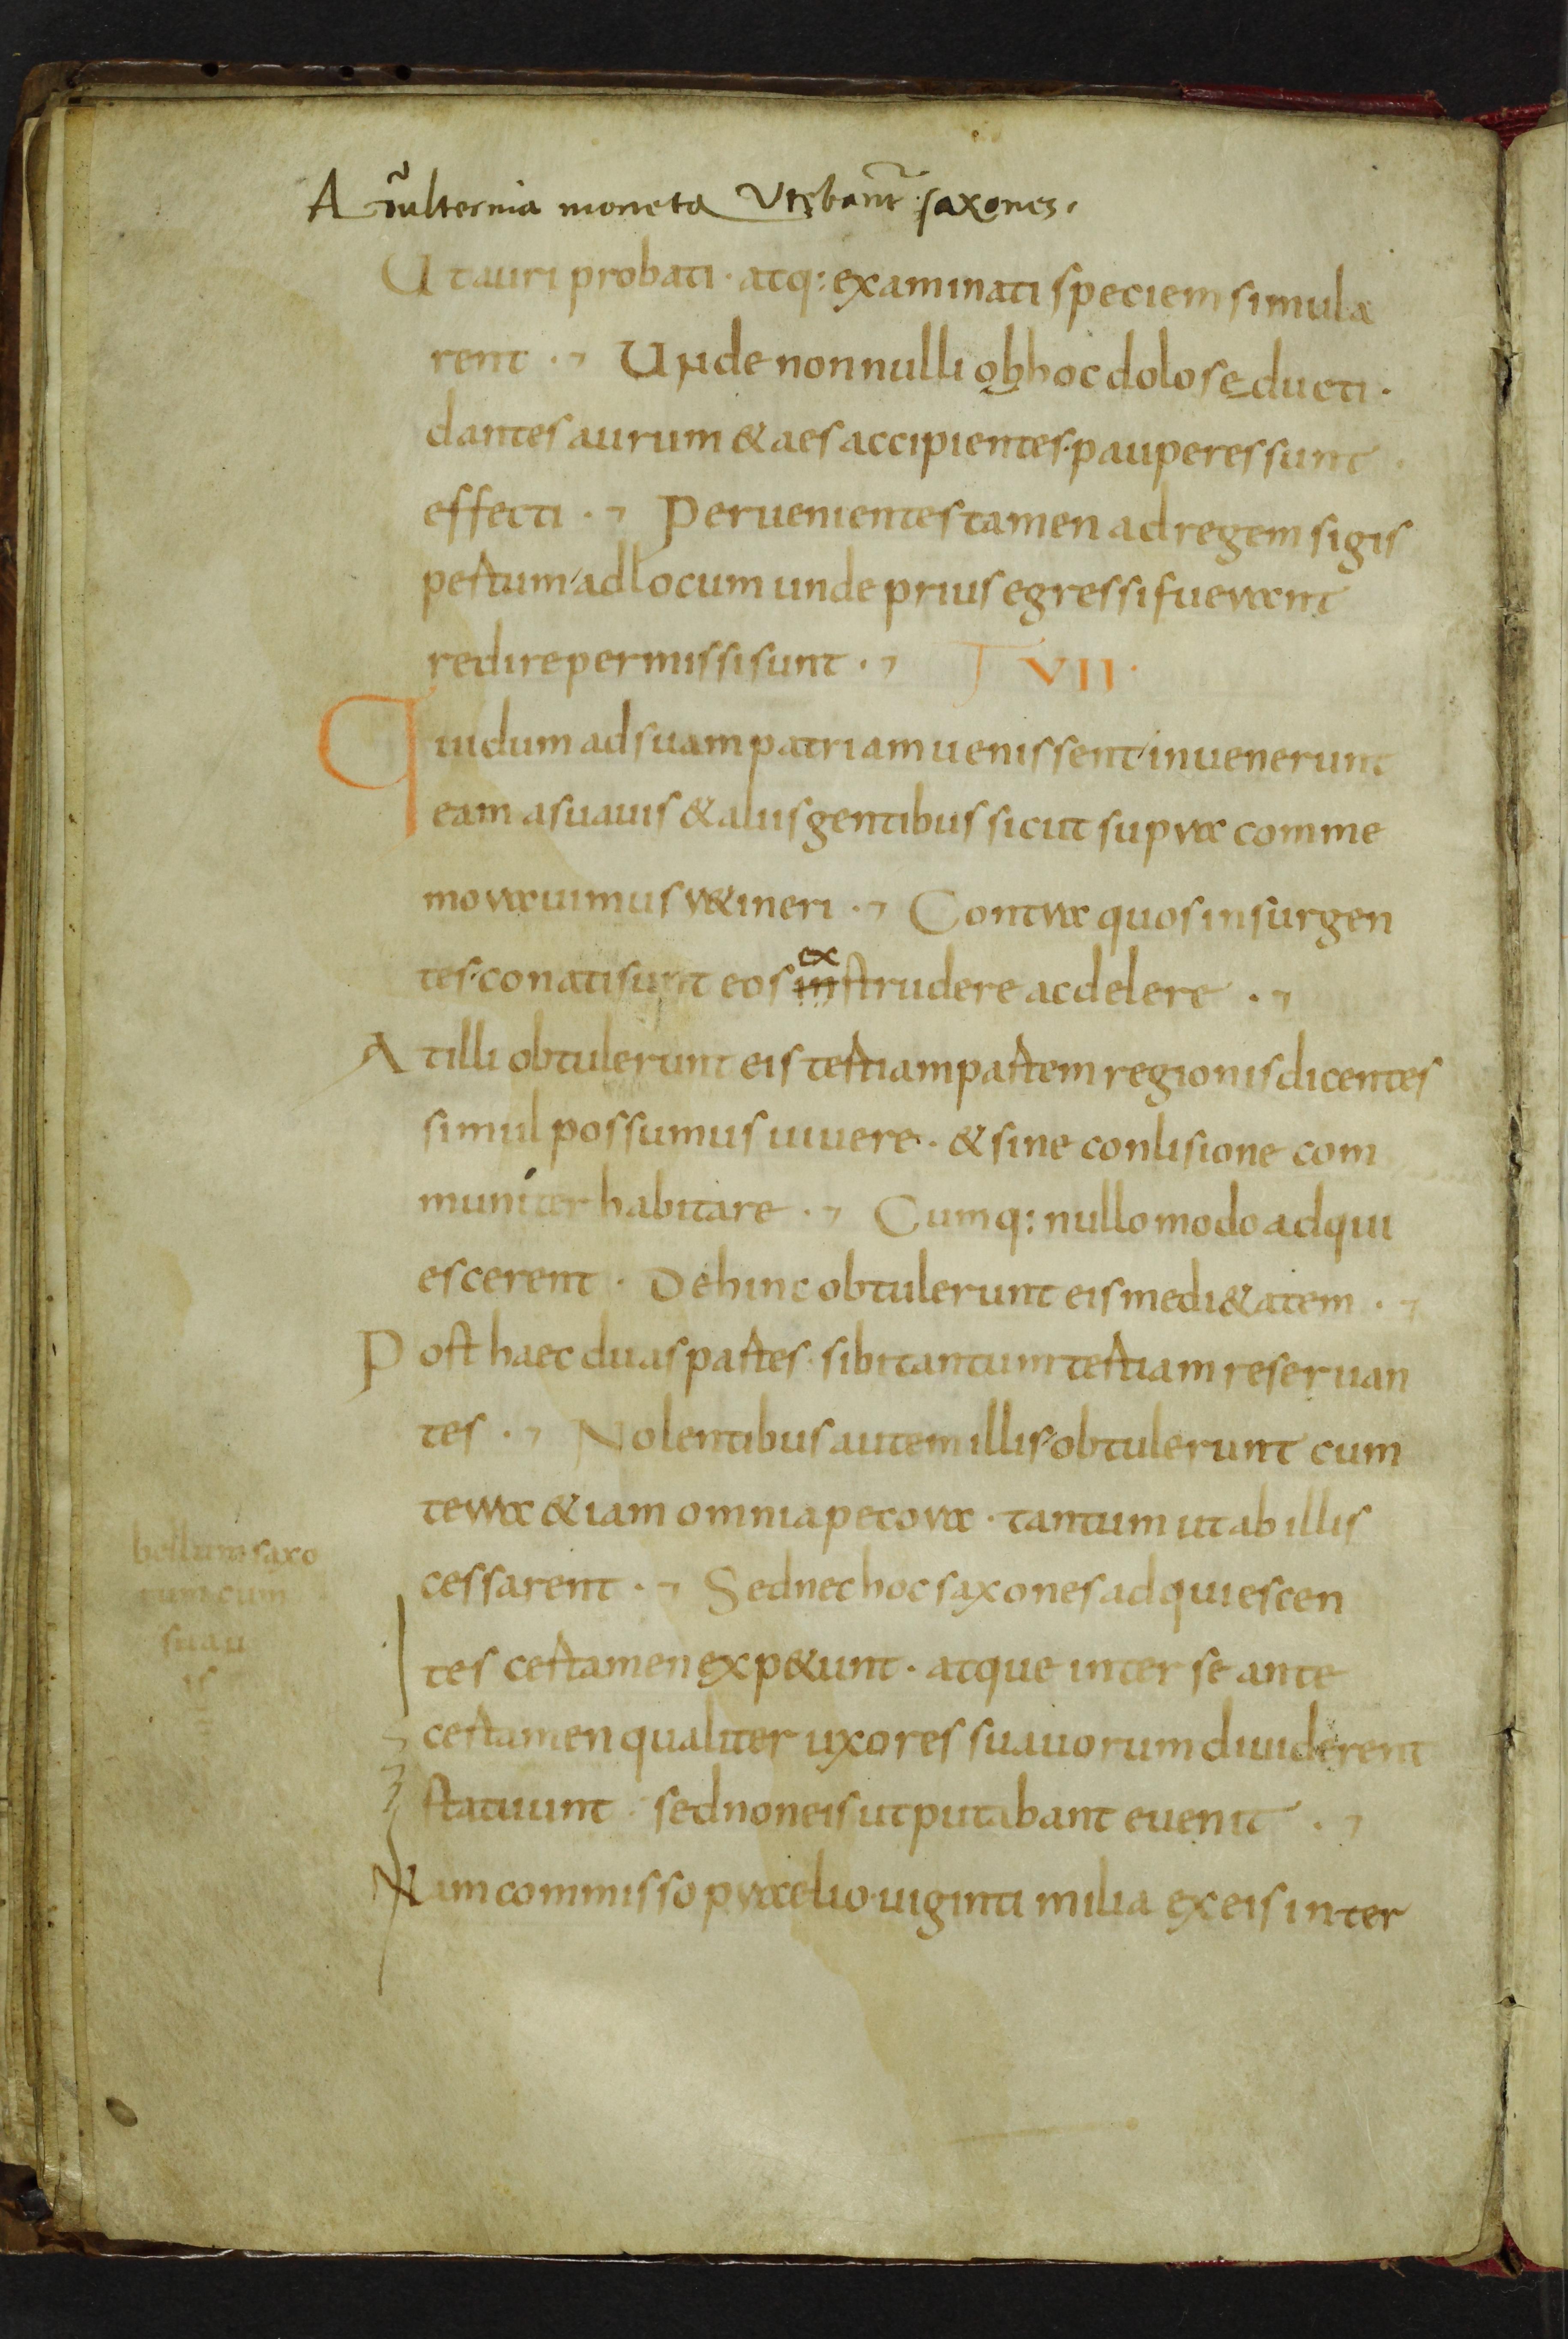 Adulterina moneta Vtebant͛ saxones.
Ut auri probati · atq: examinati speciem simula
rent · Unde nonnulli ob hoc dolo seducti ·
dantes aurum & aes accipientes · pauperes sunt
effecti · Peruenientes tamen ad regem sigis
pertum ad locum unde prius egressi fuerant
redire permissi sunt · VII ·
Qui dum ad suam patriam uenissent inuenerunt
eam a suauis & aliis gentibus sicut supra comme
morauimus r&ineri · Contra quos insurgen
tes · conati sunt eos instrudere ac delere ·
ex
At illi obtulerunt eis tertiam partem regionis dicentes
simul possumus uiuere · & sine conlisione com
muniter habitare · Cumq: nullo modo adqui
escerent · Dehinc obtulerunt eis medi&atem ·
Post haec duas partes · sibi tantum tertiam reseruan
tes · Nolentibus autem illis · obtulerunt cum
terra &iam omnia pecora · tantum ut ab illis
cessarent · Sed nec hoc saxones adquiescen
tes certamen exp&unt · atque inter se ante
certamen qualiter uxores suauorum diuiderent
statuunt · sed non eis ut putabant euenit ·
Nam commisso praelio · uiginti milia ex eis inter
bellum saxo
cum
suau
is